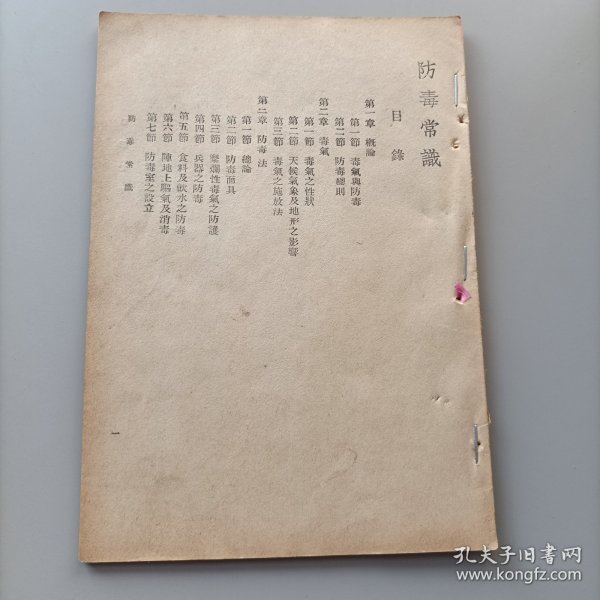 防毒常識
目錄
第一章 概論
第一節 毒氣與防毒
第二節 防毒總則
第二章 毒氣
第一節 毒氣之性狀
第二節 天候氣象及地形之影響
第三節 毒氣之施放法
第三章 防毒法
第一節 總論
第二節 防毒面具
第三節 糜爛性毒氣之防護
第四節 兵器之防毒
第五節 食料及飲水之防毒
第六節 陣地上驅氣及消毒
第七節 防毒室之設立
防毒常識
一
孔夫子旧书网
www.kongfz.com